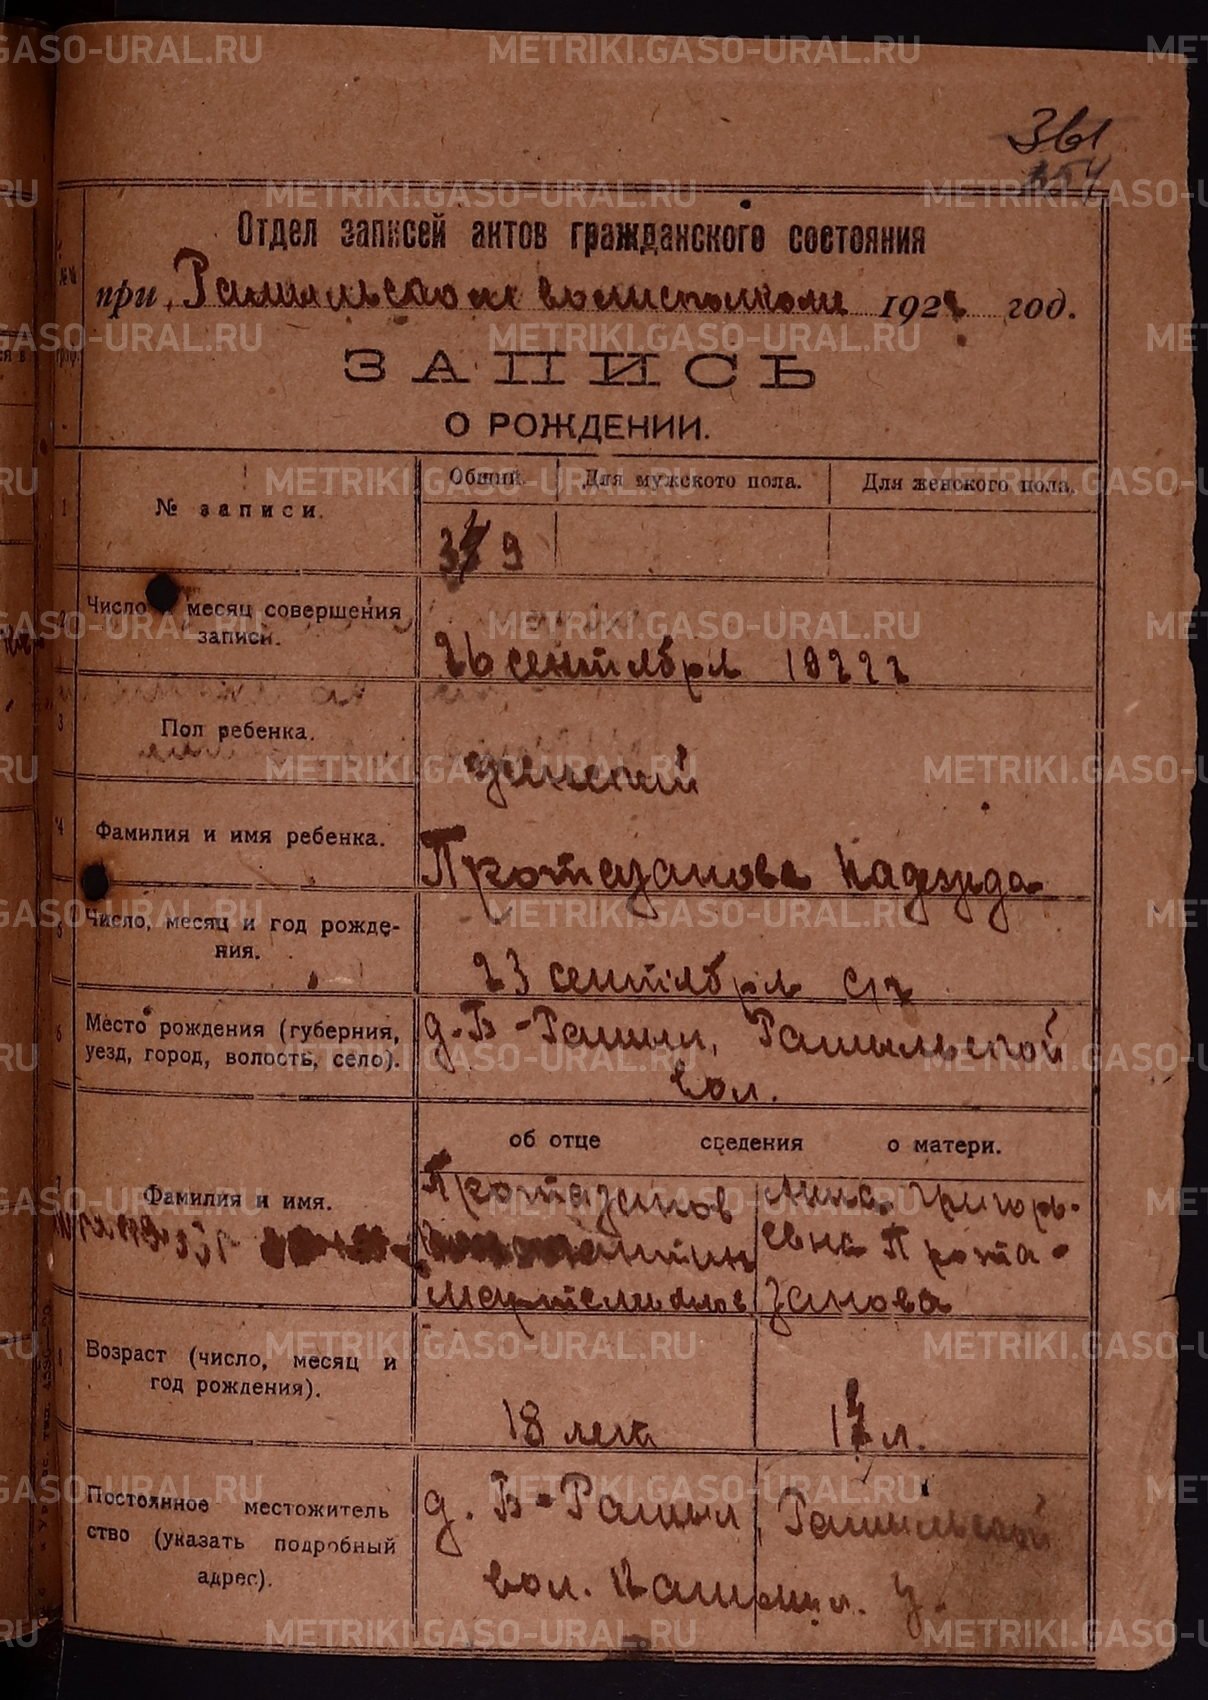 361
354
Отдел записей актов гражданского состояния
при Рамыльском волисполкоме 1922 год.
ЗАПИСЬ
О РОЖДЕНИИ.
1 № записи. Общий Для мужского пола. Для женского пола.
9
Число месяц совершения
записи.
26 сентября 1922 г
3 Пол ребенка.
женский
4 Фамилия и имя ребенка.
Протазанова Надежда
5 Число, месяц и год рожде-
ния.
23 сентября с/г
6 Место рождения (губерния,
уезд, город, волость, село).
д. Б-Рамыл, Рамыльской
вол.
об отце сведения о матери.
7 Фамилия и имя.
Протазанов
Анна Григорь-
евна Прота-
занова
8 Возраст (число, месяц и
год рождения).
18 лет
17 л.
Постоянное местожитель
ство (указать подробный
адрес).
д. Б-Рамыл, Рамыльской
вол. Камышл. у.
METRIKI.GASO-URAL.RU